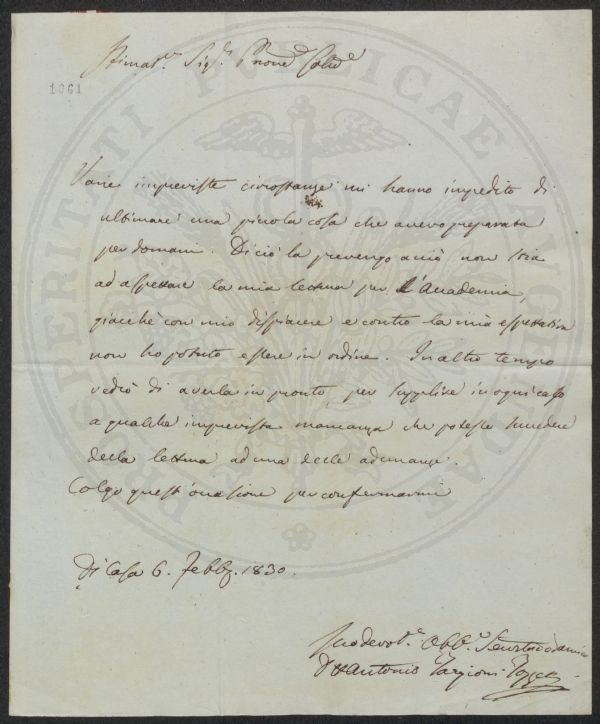 Stimat.º Sig.r Prone Col.e
1061
Varie impreviste circostanze mi hanno impedito di
ultimare una piccola cosa che avevo preparata
per domani. Di ciò la prevengo acciò non stia
ad aspettare la mia lettura per l'Accademia,
giacchè con mio dispiacere e contro la mia espettativa
non ho potuto essere in ordine. In altro tempo
vedrò di averla in pronto, per supplire in ogni caso
a qualche imprevista mancanza che potesse succedere
della lettura ad una delle adunanze.
Colgo quest'occasione per confermarmi
Di Casa 6. Febb. 1830.
Suo devot. Obb. Serv.
D Antonio Targioni Tozzetti
PROSPERITATI PUBLICAE AUGENDAE